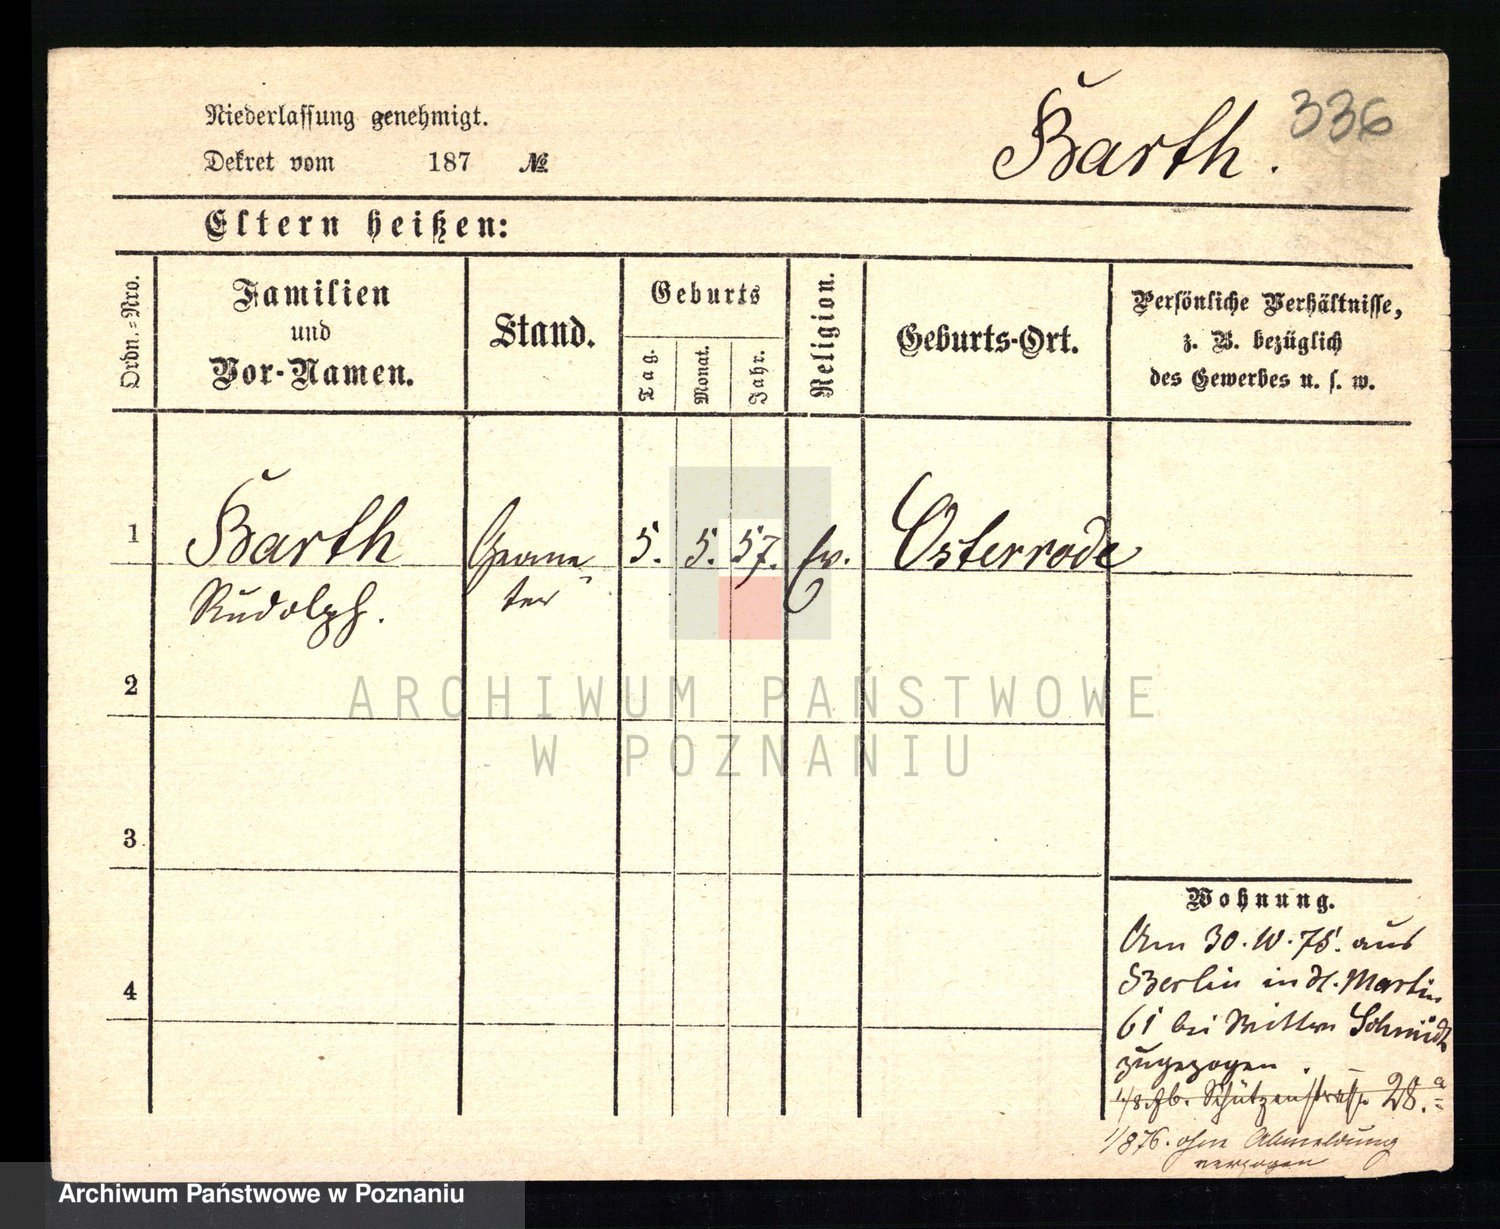 Niederlassung genehmigt.
Dekret vom 187 №
Barth.
336
Eltern heißen:
Ordn.-Nro.
Familien
und
Vor-Namen.
Stand.
Geburts
Tag.
Monat.
Jahr.
Religion.
Geburts-Ort.
Persönliche Verhältnisse,
z. B. bezüglich
des Gewerbes u. s. w.
1
Barth
Rudolph.
Geome-
ter
5. 5. 57.
Ev.
Osterrode
2
3
4
Wohnung.
Am 30. IV. 75. aus
Berlin in St. Martin
61 bei Schmidt
zugezogen.
Schützenstraß. 28.a
1/8 76. ohne Abmeldung
verzogen
ARCHIWUM PAŃSTWOWE
W POZNANIU
Archiwum Państwowe w Poznaniu